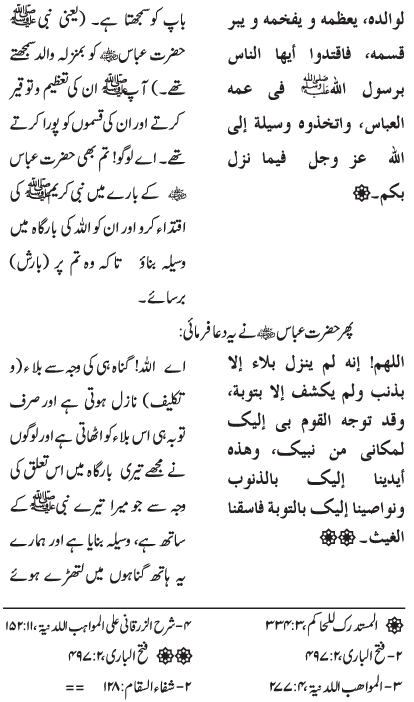 لوالده، يعظمه و يفخمه و يبر
قسمه، فاقتدوا أيها الناس
برسول الله ﷺ فى عمه
العباس، واتخذوه وسيلة إلى
الله عز وجل فيما نزل
بكم۔
باپ کو سمجھتا ہے۔ (یعنی نبی ﷺ
حضرت عباس ؓ کو بمنزلہ والد سمجھتے
تھے۔) آپ ﷺ ان کی تعظیم و توقیر
کرتے اور ان کی قسموں کو پورا کرتے
تھے۔ اے لوگو! تم بھی حضرت عباس
ؓ کے بارے میں نبی کریم ﷺ کی
اقتداء کرو اور ان کو اللہ کی بارگاہ میں
وسیلہ بناؤ تا کہ وہ تم پر (بارش)
برسائے۔
پھر حضرت عباس ؓ نے یہ دعا فرمائی:
اللهم! إنه لم ينزل بلاء إلا
بذنب ولم يكشف إلا بتوبة،
وقد توجه القوم بى إليك
لمكانى من نبيك، وهذه
أيدينا إليك بالذنوب
ونواصينا إليك بالتوبة فاسقنا
الغيث۔
اے اللہ! گناہ ہی کی وجہ سے بلاء (و
تکلیف) نازل ہوتی ہے اور صرف
توبہ ہی اس بلاء کو اٹھاتی ہے اور لوگوں
نے مجھے تیری بارگاہ میں اس تعلق کی
وجہ سے جو میرا تیرے نبی ﷺ کے
ساتھ ہے، وسیلہ بنایا ہے اور ہمارے
یہ ہاتھ گناہوں میں لتھڑے ہوئے
المستدرک للحاکم، ۳:۳۳۴
۲۔ فتح الباری، ۲:۴۹۷
۳۔ المواهب اللدنية، ۴:۲۷۷
۴۔ شرح الزرقانی علی المواهب اللدنية، ۱۱:۱۵۲
فتح الباری، ۲:۴۹۷
۲۔ شفاء السقام: ۱۲۸ ==